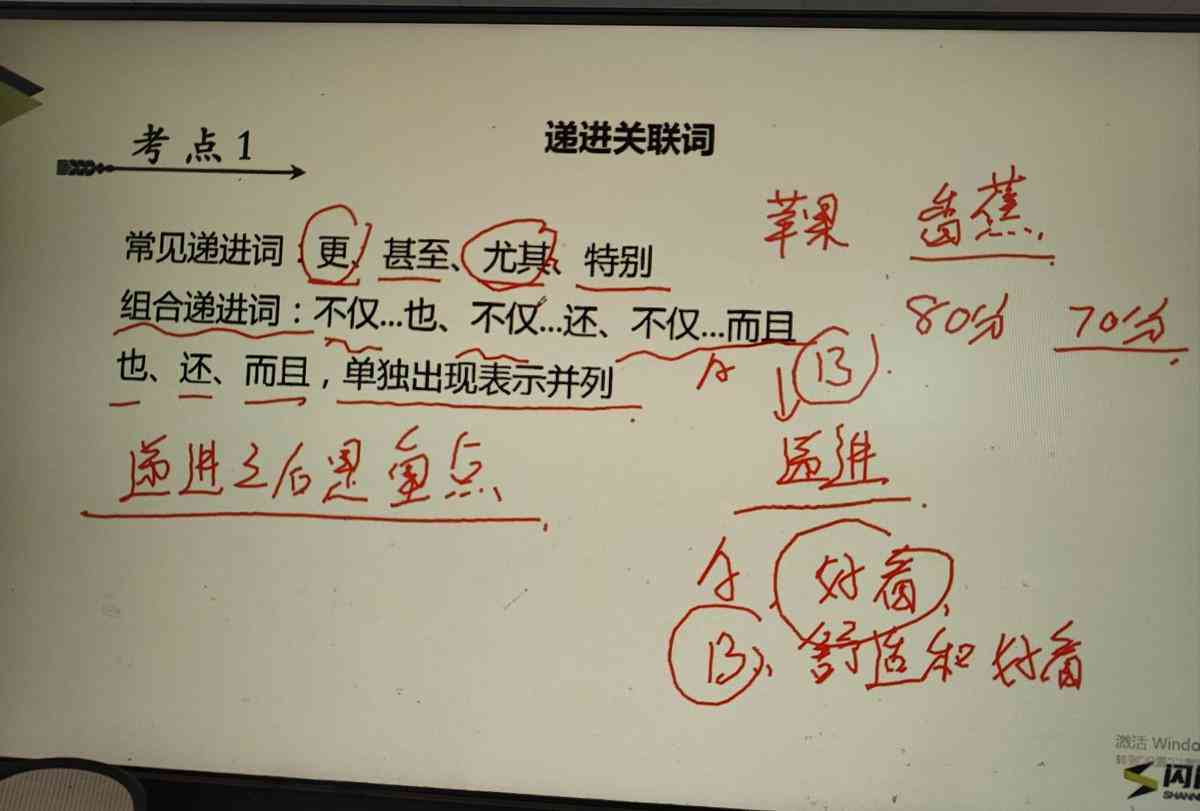 考点1
递进关联词
苹果 香蕉
常见递进词：更、甚至、尤其、特别
组合递进词：不仅...也、不仅...还、不仅...而且
80分 70分
也、还、而且，单独出现表示并列
A B
递进之后是重点
递进
A、好看、
B、舒适和好看
激活 Windo
闪
SHANN